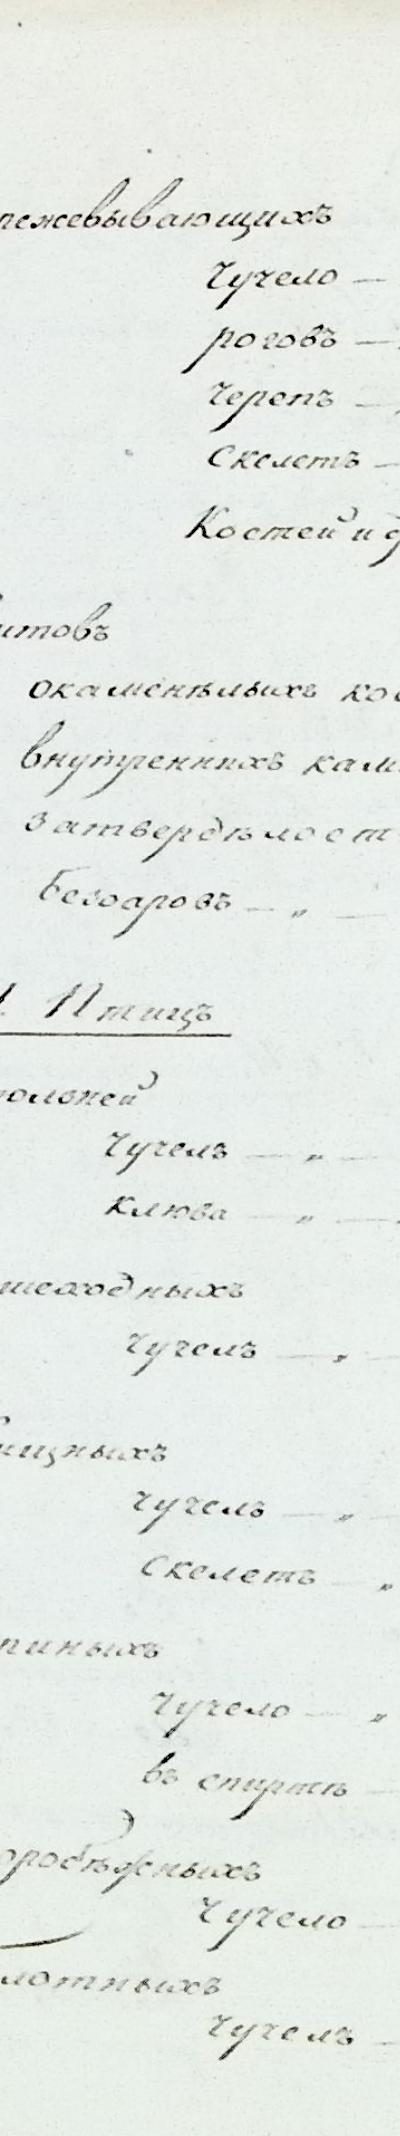 режевывающихъ
Чучело —
роговъ —
Черепъ —
Скелетъ —
Костей и
итовъ
окаменѣлыхъ кос
внутреннихъ кам
затвердѣлост
Безоаровъ — „ —
Птицъ
ольней
Чучелъ — „ —
Клюва — „ —
шеходныхъ
Чучелъ — „ —
ищныхъ
Чучелъ — „ —
Скелетъ — „
пиныхъ
Чучело — „
въ спиртѣ —
оробѣжныхъ
Чучело —
лотныхъ
Чучелъ —